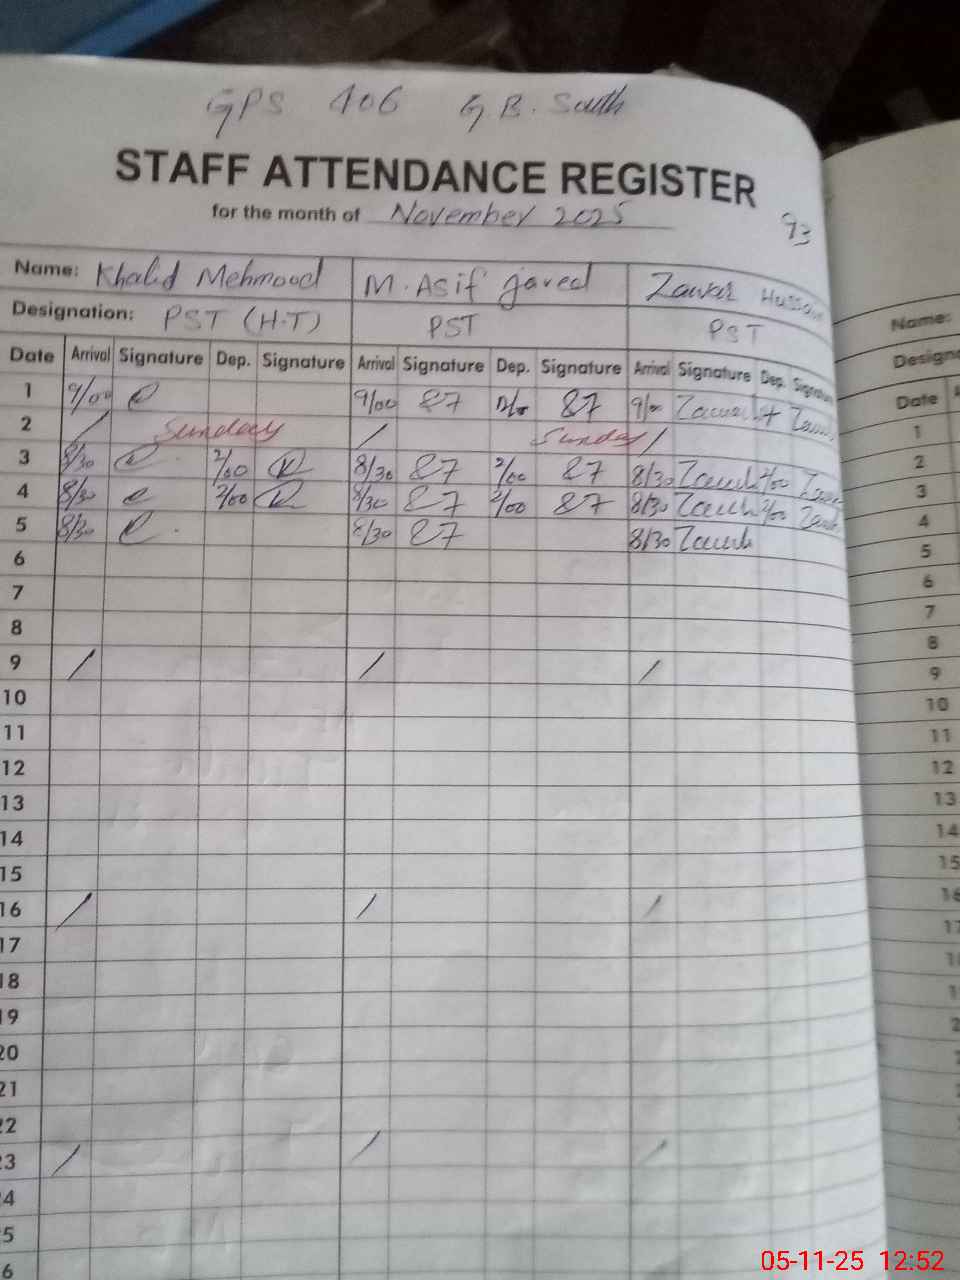 GPS 406 G.B. South
STAFF ATTENDANCE REGISTER
for the month of November 2025
93
Name: Khalid Mehmood M. Asif javed Zawar Hussain
Designation: PST (H.T) PST PST
Date Arrival Signature Dep. Signature Arrival Signature Dep. Signature Arrival Signature Dep. Signature
1 9/00 9/00 9/00
2 / Sunday / Sunday /
3 8/30 2/00 8/30 2/00 8/30 2/00
4 8/30 2/00 8/30 2/00 8/30 2/00
5 8/30 8/30 8/30
6
7
8
9 / / /
10
11
12
13
14
15
16 / / /
17
18
19
20
21
22
23 / / /
Name:
Date
1
2
3
4
5
6
7
8
9
10
11
12
13
14
15
05-11-25 12:52